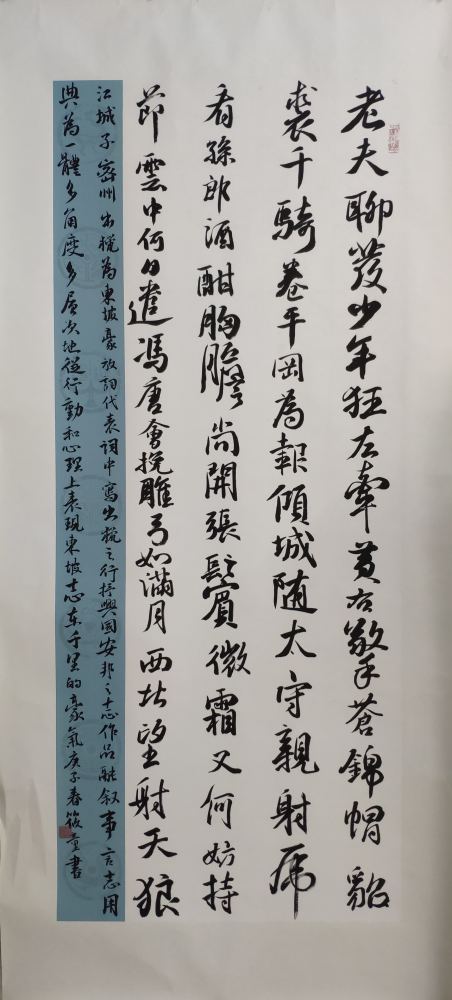 老夫聊發少年狂左牽黄右擎蒼錦帽貂
裘千騎卷平岡為報傾城随太守親射虎
看孫郎酒酣胸膽尚開張鬢微霜又何妨持
節雲中何日遣馮唐會挽雕弓如滿月西北望射天狼
江城子密州出獵為東坡豪放詞代表詞中寫出獵之行抒興國安邦之志作品融叙事言志用
典為一體多角度多層次地從行動和心理上表現東坡志在千里的豪氣庚子春筱童書